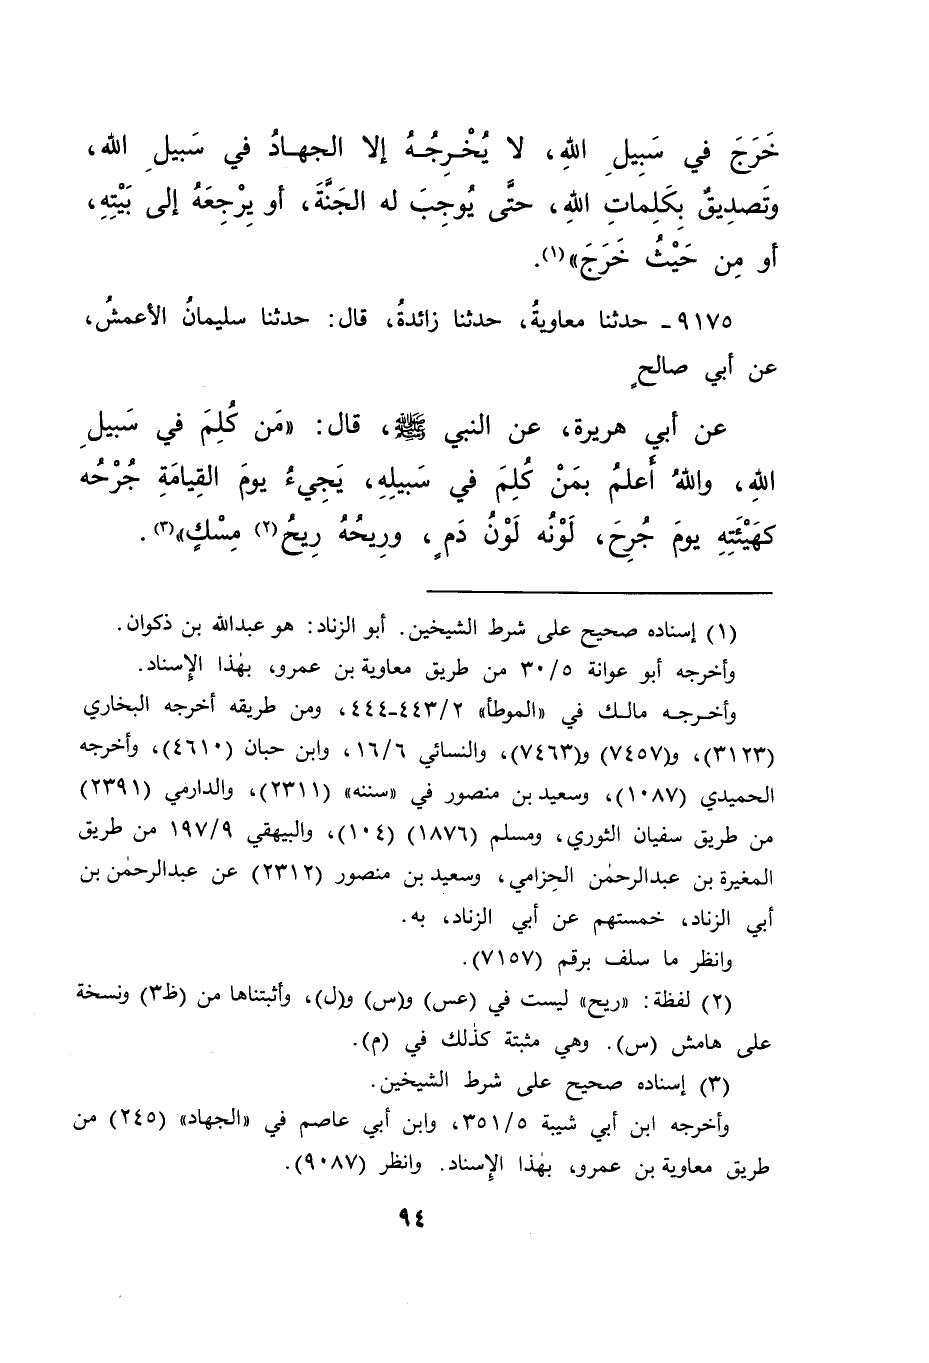 خَرَجَ في سَبِيلِ اللهِ، لا يُخْرِجُهُ إلا الجهادُ في سَبيلِ الله،
وتَصدِيقٌ بِكَلِماتِ اللهِ، حتَّى يُوجِبَ له الجَنَّةَ، أو يرْجِعَهُ إلى بَيْتِهِ،
أو مِن حَيْثُ خَرَجَ»(١).
٩١٧٥ـ حدثنا معاويةُ، حدثنا زائدةُ، قال: حدثنا سليمانُ الأعمشُ،
عن أبي صالحٍ
عن أبي هريرة، عن النبي ﷺ، قال: «مَن كُلِمَ في سَبيلِ
اللهِ، واللهُ أَعلمُ بمَنْ كُلِمَ في سَبيلِهِ، يَجِيءُ يومَ القِيامَةِ جُرْحُه
كهَيْئَتِهِ يومَ جُرِحَ، لَوْنُه لَوْنُ دَمٍ، ورِيحُهُ رِيحُ(٢) مِسْكٍ»(٣).
(١) إسناده صحيح على شرط الشيخين. أبو الزناد: هو عبدالله بن ذكوان.
وأخرجه أبو عوانة ٣٠/٥ من طريق معاوية بن عمرو، بهٰذا الإسناد.
وأخرجه مالك في «الموطأ» ٤٤٣/٢-٤٤٤، ومن طريقه أخرجه البخاري
(٣١٢٣)، و(٧٤٥٧) و(٧٤٦٣)، والنسائي ١٦/٦، وابن حبان (٤٦١٠)، وأخرجه
الحميدي (١٠٨٧)، وسعيد بن منصور في «سننه» (٢٣١١)، والدارمي (٢٣٩١)
من طريق سفيان الثوري، ومسلم (١٨٧٦) (١٠٤)، والبيهقي ١٩٧/٩ من طريق
المغيرة بن عبدالرحمٰن الحِزامي، وسعيد بن منصور (٢٣١٢) عن عبدالرحمٰن بن
أبي الزناد، خمستهم عن أبي الزناد، به.
وانظر ما سلف برقم (٧١٥٧).
(٢) لفظة: «ريح» ليست في (عس) و(س) و(ل)، وأثبتناها من (ظ٣) ونسخة
على هامش (س). وهي مثبتة كذٰلك في (م).
(٣) إسناده صحيح على شرط الشيخين.
وأخرجه ابن أبي شيبة ٣٥١/٥، وابن أبي عاصم في «الجهاد» (٢٤٥) من
طريق معاوية بن عمرو، بهٰذا الإسناد. وانظر (٩٠٨٧).
٩٤